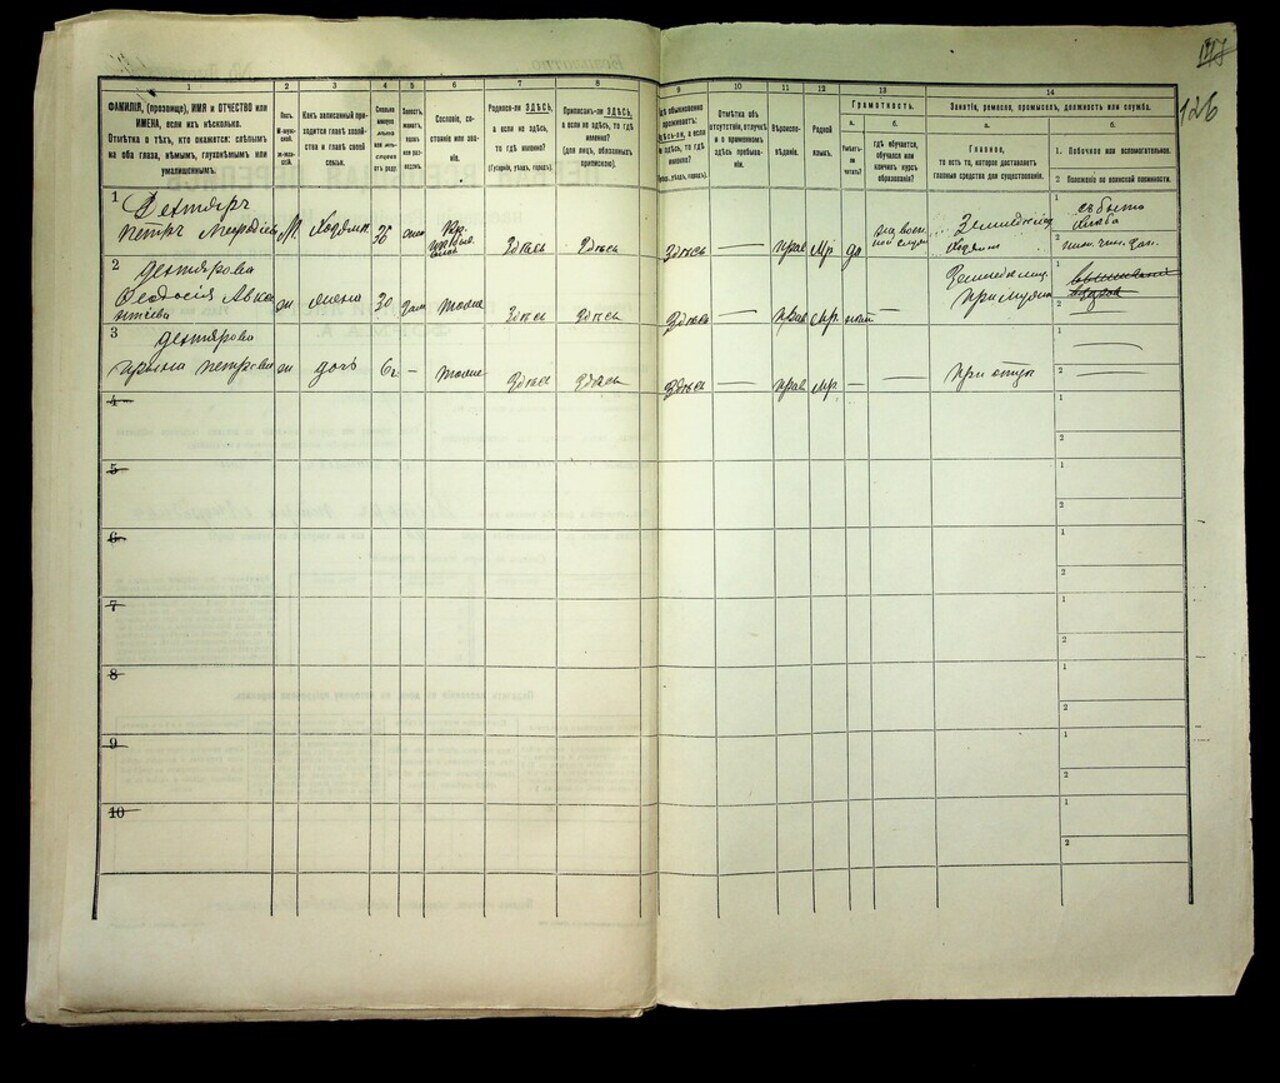 126
1 2 3 4 5 6 7 8 9 10 11 12 13 14
ФАМИЛІЯ, (прозвище), ИМЯ и ОТЧЕСТВО или
ИМЕНА, если ихъ нѣсколько.
Отмѣтка о тѣхъ, кто окажется: слѣпымъ
на оба глаза, нѣмымъ, глухонѣмымъ или
умалишеннымъ.
Полъ.
М-мужской.
Ж-женскій.
Какъ записанный приходится главѣ хозяйства и главѣ своей
семьи.
Сколько
минуло
лѣтъ
или мѣсяцевъ
отъ роду.
Холостъ,
женатъ,
вдовъ
или разведенъ.
Сословіе, состояніе или званіе.
Родился-ли ЗДѢСЬ,
а если не здѣсь,
то гдѣ именно?
(Губернія, уѣздъ, городъ).
Приписанъ-ли ЗДѢСЬ,
а если не здѣсь, то гдѣ
именно?
(для лицъ, обязанныхъ
припискою).
Гдѣ обыкновенно
проживаетъ:
здѣсь-ли, а если
не здѣсь, то гдѣ
именно?
(Губ., уѣздъ, городъ).
Отмѣтка объ
отсутствіи, отлучкѣ
и о временномъ
здѣсь пребываніи.
Вѣроисповѣданіе.
Родной
языкъ.
Грамотность.
а.
Умѣетъ-ли
читать?
б.
гдѣ обучается,
обучался или
кончилъ курсъ
образованія?
Занятіе, ремесло, промыселъ, должность или служба.
а.
Главное,
то есть то, которое доставляетъ
главныя средства для существованія.
б.
1. Побочное или вспомогательное.
2 Положеніе по воинской повинности.
1 Дехтярь
Петръ М. Хозяинъ 36 Здѣсь Здѣсь Здѣсь — прав Мр да
Хозяинъ
2 Дехтярова
Феодосія жена 30 Тоже Здѣсь Здѣсь Здѣсь — прав Мр. —
При мужѣ
3 Дехтярова
Петрова дочь 6 — Тоже Здѣсь Здѣсь Здѣсь — прав Мр. — — При отцѣ
4
5
6
7
8
9
10